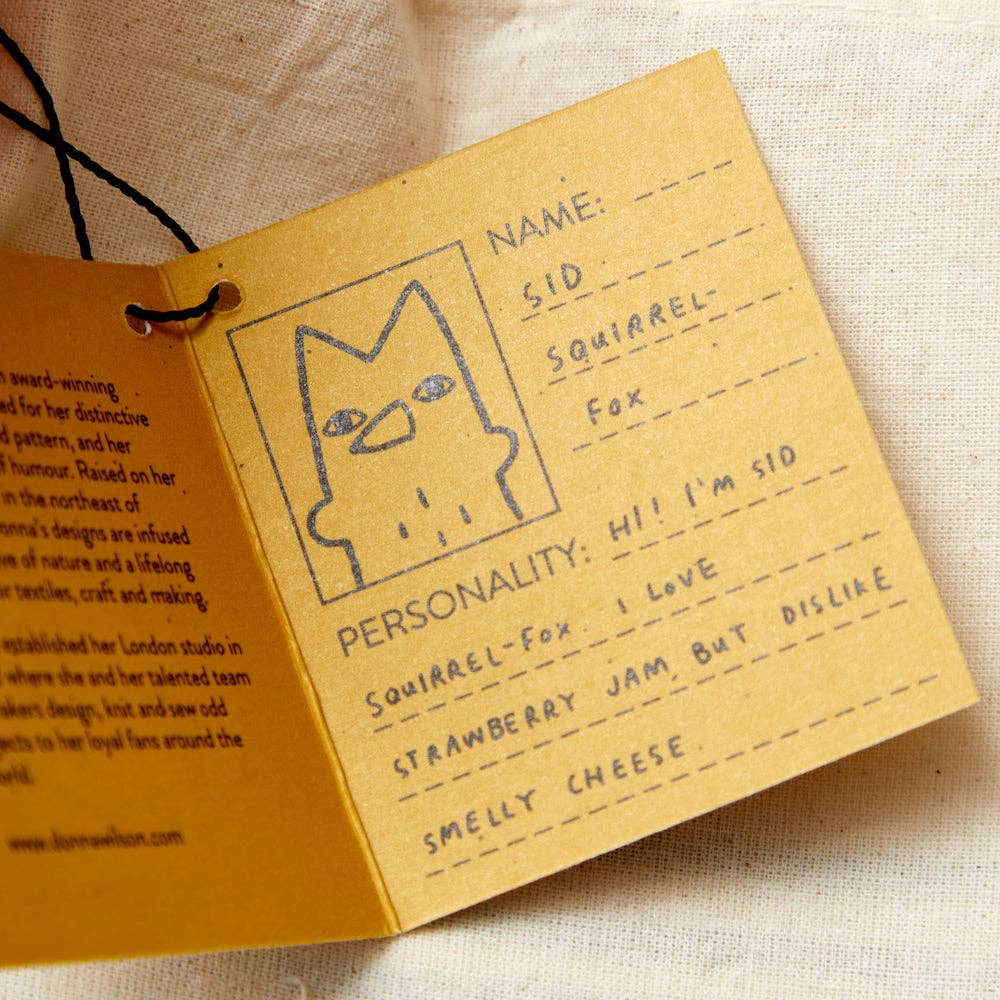 award-winning
ed for her distinctive
d pattern, and her
f humour. Raised on her
in the northeast of
onna's designs are infused
ve of nature and a lifelong
textiles, craft and making.
established her London studio in
where she and her talented team
akers design, knit and sew odd
jects to her loyal fans around the
orld.
www.donnawilson.com
NAME:
SID
SQUIRREL-
FOX
PERSONALITY: HI! I'M SID
SQUIRREL-FOX. I LOVE
STRAWBERRY JAM BUT DISLIKE
SMELLY CHEESE.